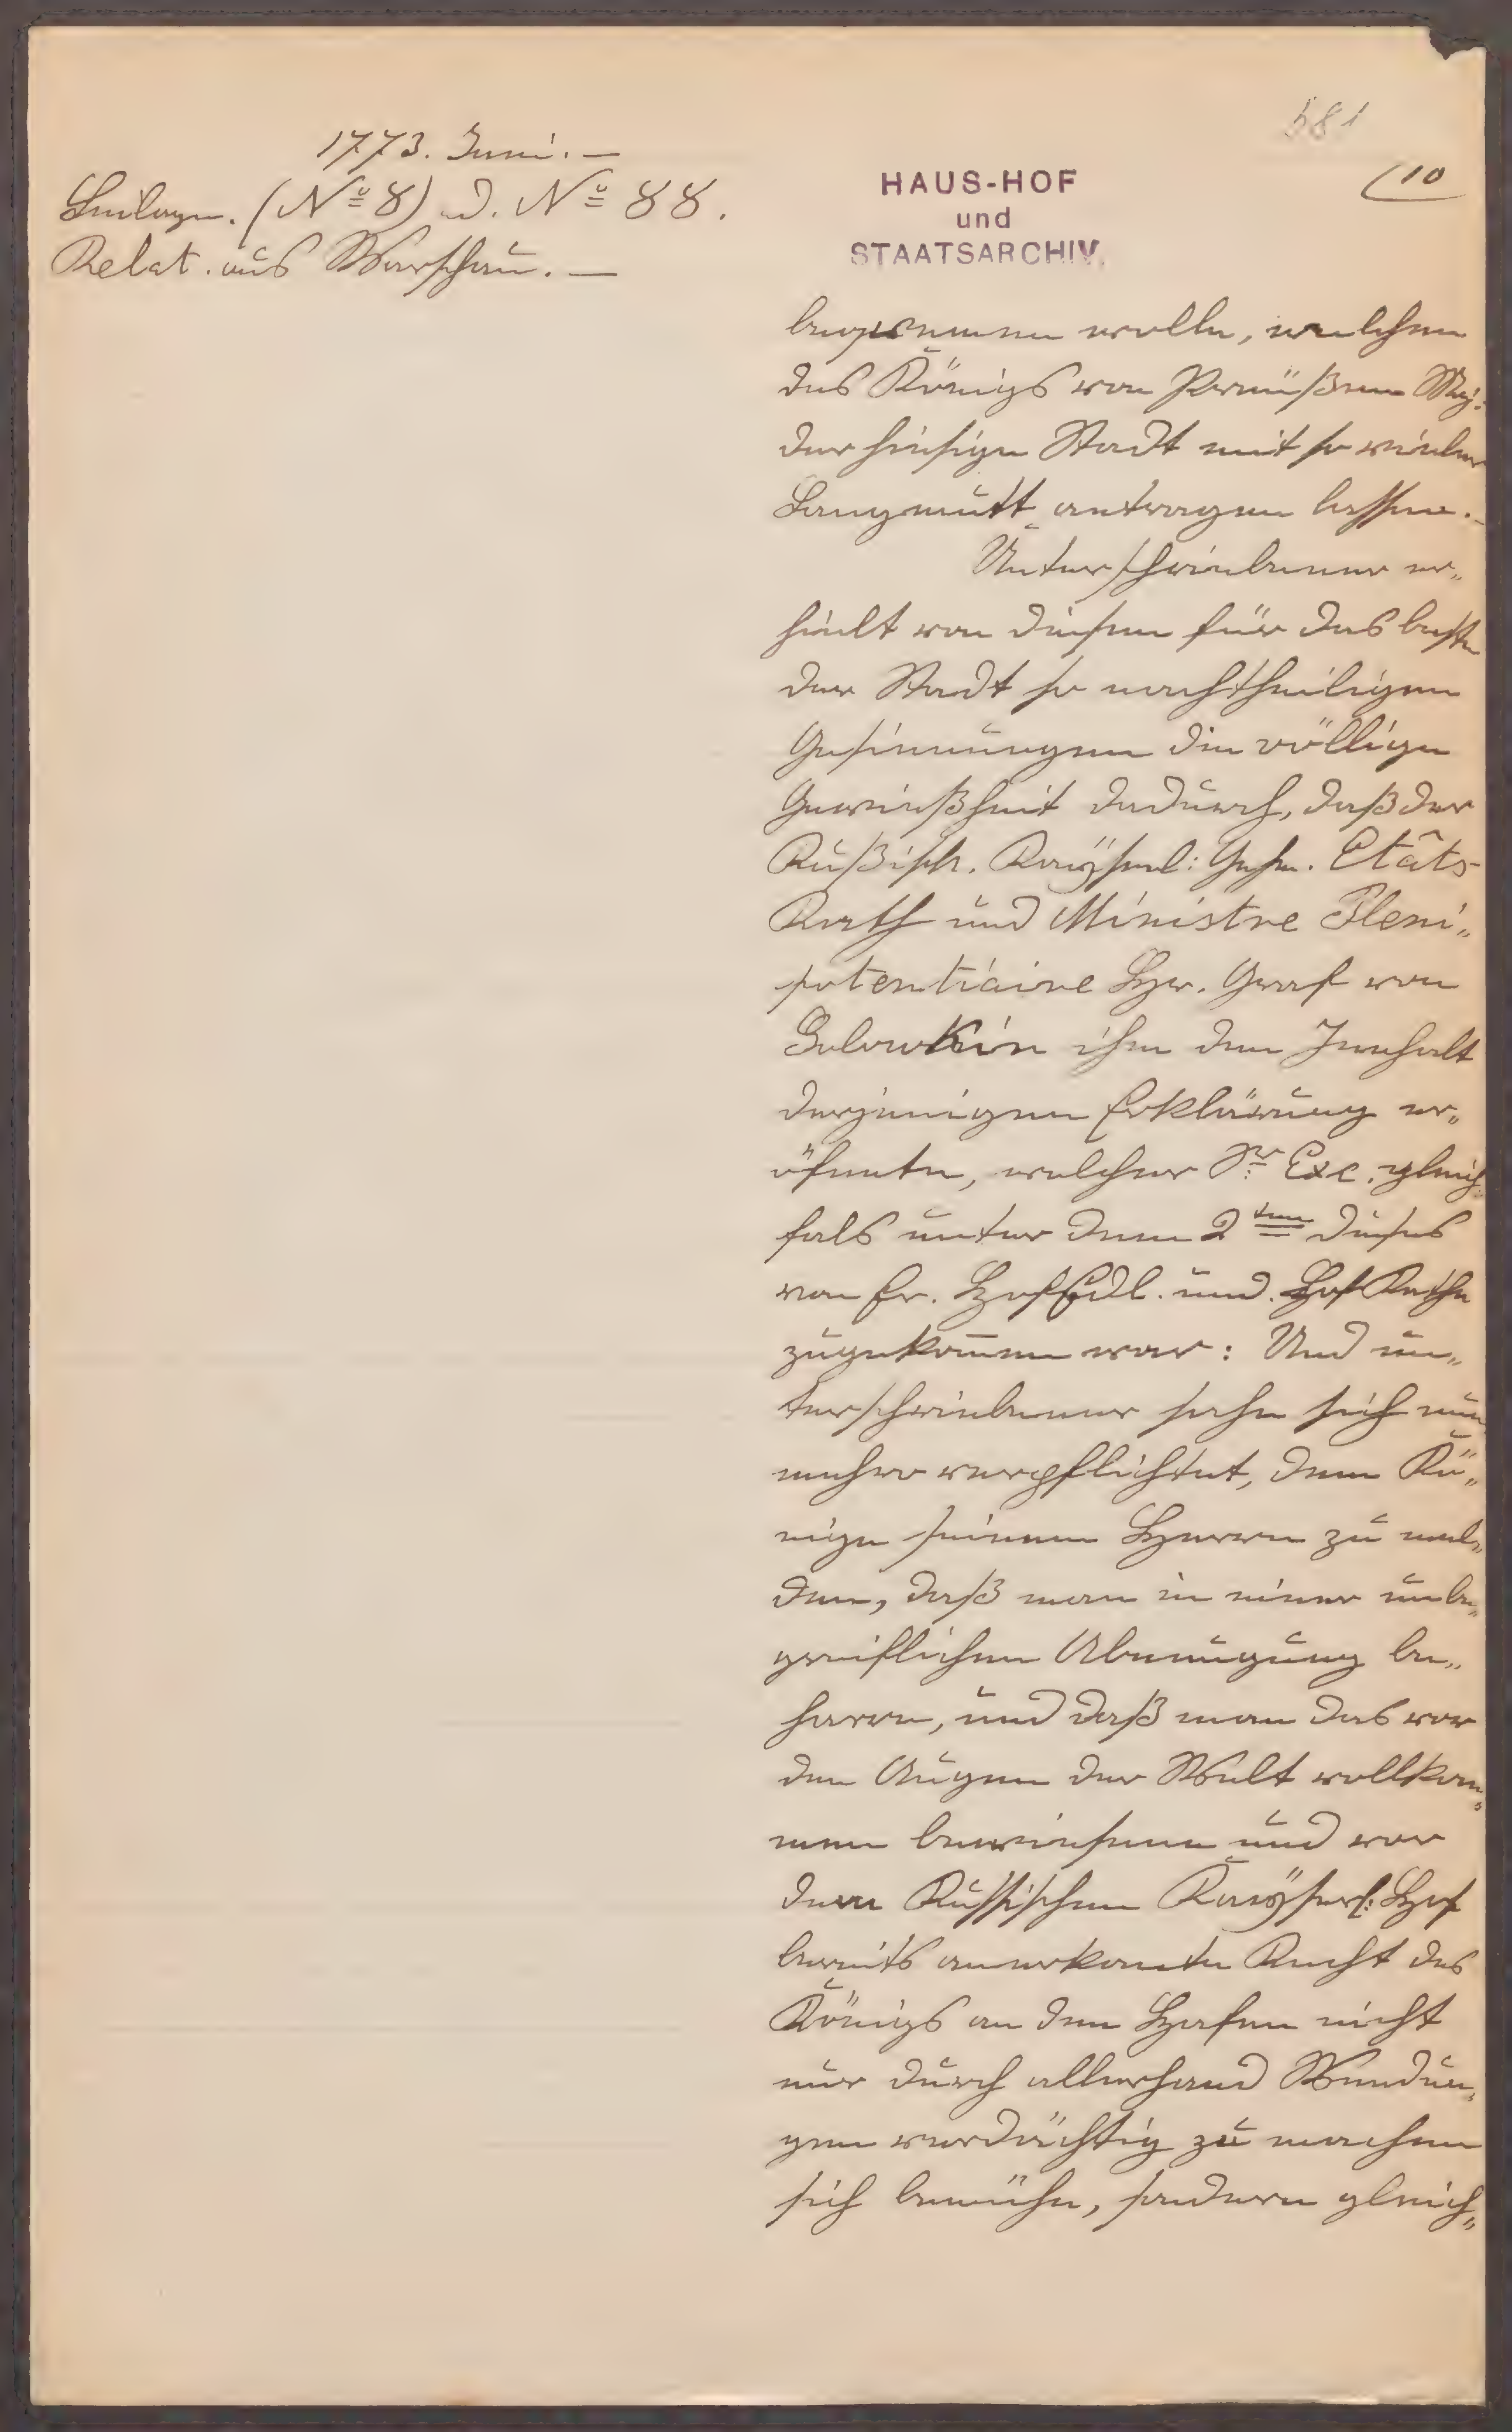 581
10
1773. Juni. —
Beilagen. (N° 8) d. N° 88.
Relat. aus Warschau. —
HAUS-HOF
und
STAATSARCHIV.
bequemen wolle, welchen
des Königs von Preüßen Maj:
der hiesigen Stadt mit so vieler
Langmutt antragen lassen. —
Unterschriebener er„
hielt von diesen für das beste
der Stadt so nachtheiligen
Gesinnungen die völlige
Gewießheit dadurch, daß der
Rußisch. Kaÿserl: Gehe. Etâts-
Rath und Ministre Pleni„
potentiaire Hr. Graf von
Golowkin ihm den Jnnhalt
derjenigen Erklärung er„
öfnete, welcher Sr Exc. gleich„
fals unter dem 2ten dieses
von Er. HochEdl. und. Hof Rathe
zugekom̄en war: Und un„
terschriebener sahe sich nun
mehro verpflichtet, dem Kö„
nige seinem Herrn zu mel„
den, daß man in einer unbe„
greiflichen Abneigung be„
harre, und daß man das vor
den Augen der Welt vollkom„
men bewiesene und vor
dem Russischen Kaÿserl: Hof
bereits anerkante Recht des
Königs an dem Hafen nicht
nur durch allerhand Wendun„
gen verdächtig zu machen
sich bemühe, sondern gleich„